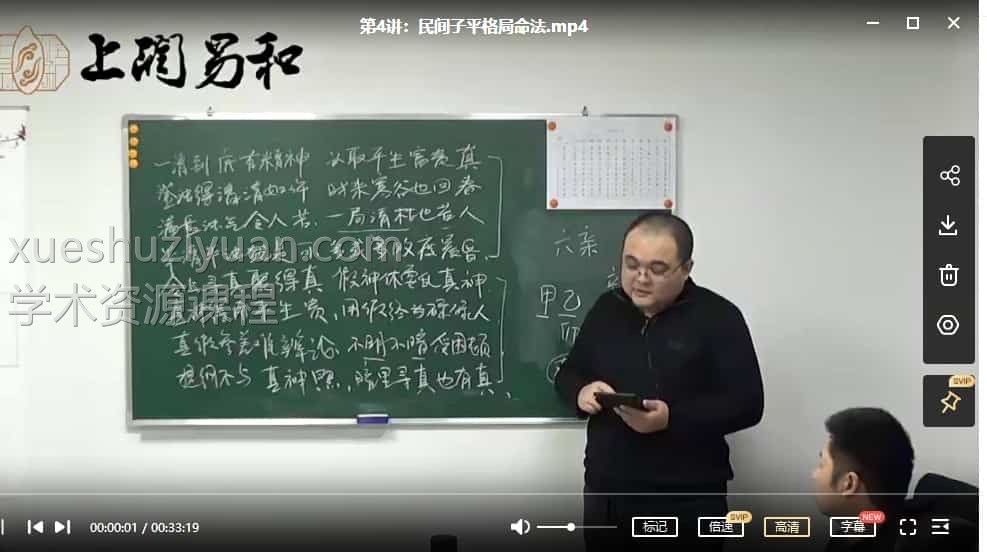 第4讲：民间子平格局命法.mp4
上润易和
一清到底有精神 管取平生富贵真
时来寒谷也回春
满盘浊气令人苦 一局清枯也苦人
xueshuziyuan.com
学术资源课程
真聚得真 假神休要乱真神
平生贵 用假终为碌碌人
真假参差难辨论 不明不暗受困顿
提纲不与真神照 暗里寻真也有真
六亲
甲乙
SVIP
00:00:01 / 00:33:19
标记
倍速
SVIP
高清
字幕
NEW